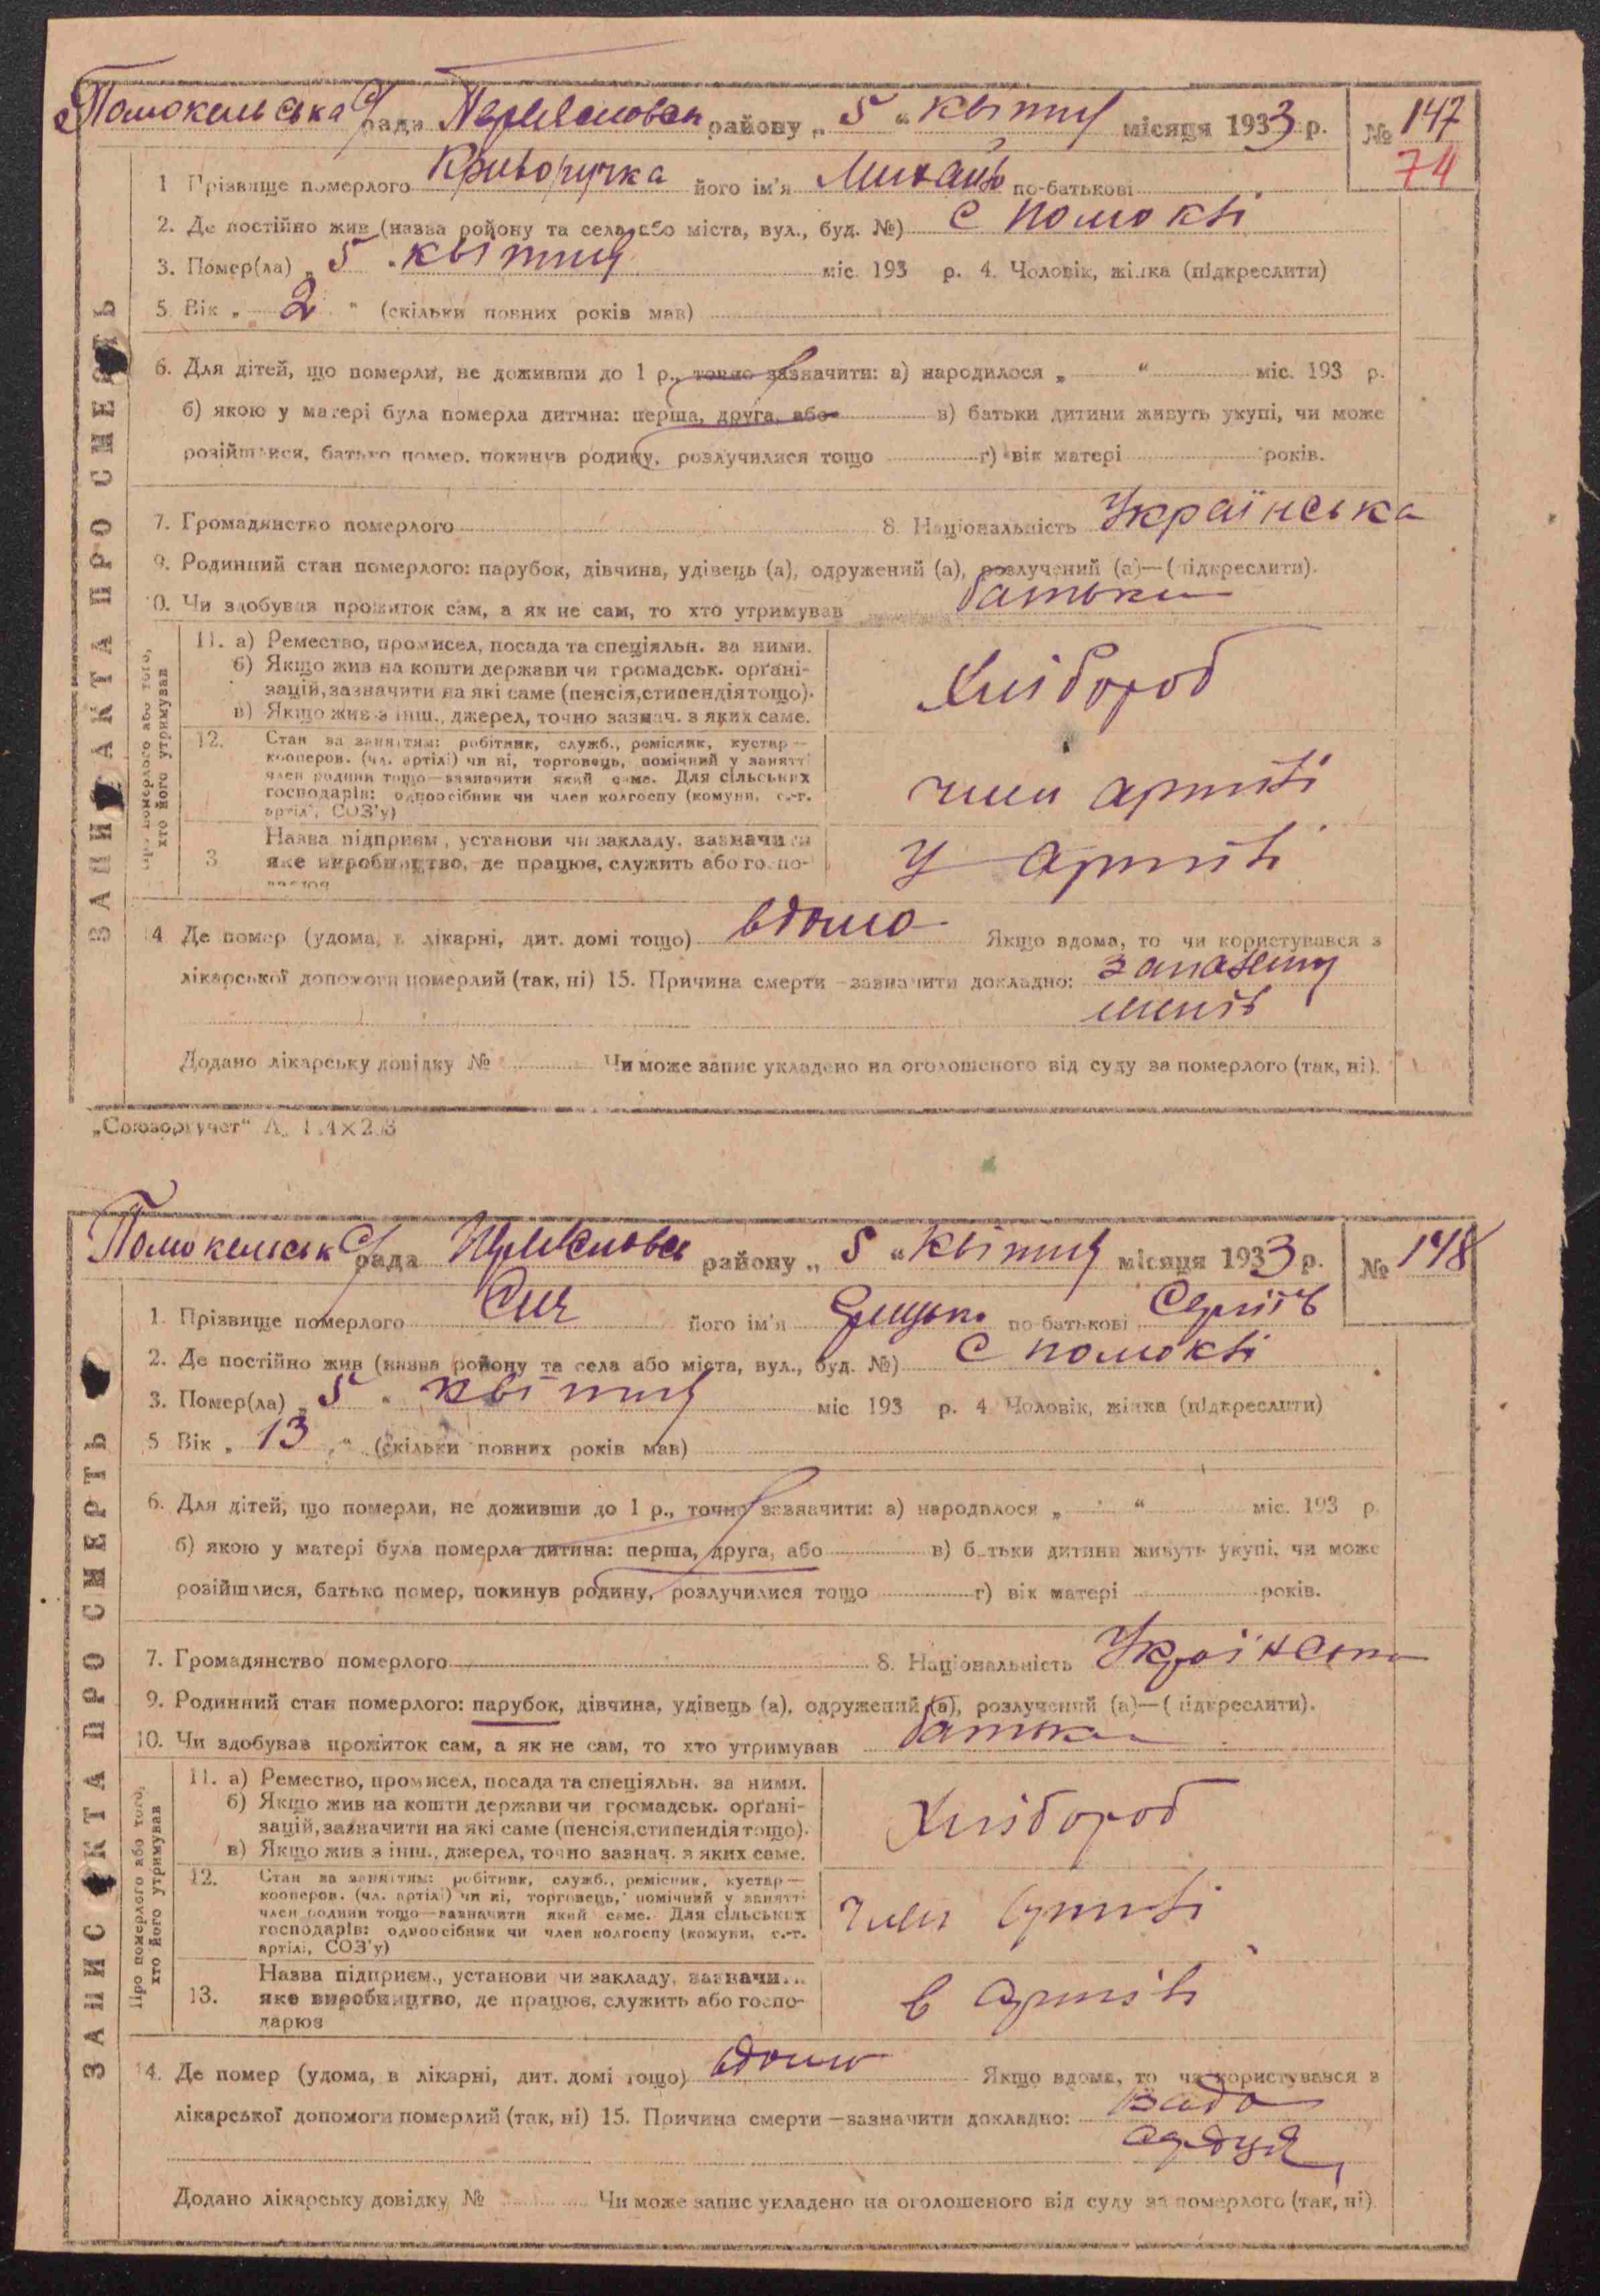 Помокельська с/рада Переяславськ району „ 5 “ квітня місяця 1933 р. № 147
74
ЗАПИС АКТА ПРО СМЕРТЬ
1 Прізвище померлого Криворучка його ім'я Михайло по-батькові
2. Де постійно жив (назва району та села або міста, вул., буд. №) с Помоклі
3. Помер(ла) „ 5 “ квітня міс. 193 р. 4. Чоловік, жінка (підкреслити)
5. Вік „ 2 “ (скільки повних років мав)
6. Для дітей, що померли, не доживши до 1 р., точно зазначити: а) народилося „ “ міс. 193 р.
б) якою у матері була померла дитина: перша, друга, або в) батьки дитини живуть укупі, чи може
розійшлися, батько помер, покинув родину, розлучилися тощо г) вік матері років.
7. Громадянство померлого 8. Національність Українська
9. Родинний стан померлого: парубок, дівчина, удівець (а), одружений (а), розлучений (а)—(підкреслити).
10. Чи здобував прожиток сам, а як не сам, то хто утримував батьки
Про померлого або того, хто його утримував
11. а) Ремество, промисел, посада та спеціяльн. за ними.
б) Якщо жив на кошти держави чи громадськ. орґані-
зацій, зазначити на які саме (пенсія, стипендія тощо).
в) Якщо жив з інш., джерел, точно зазнач. з яких саме.
Хлібороб
12. Стан за заняттям: робітник, служб., ремісник, кустар—
кооперов. (чл. артілі) чи ні, торговець, помічний у занятті
член родини тощо—зазначити який саме. Для сільських
господарів: одноосібник чи член колгоспу (комуни, с.-г.
артілі, СОЗ'у)
член артілі
3 Назва підприєм., установи чи закладу, зазначити
яке виробництво, де працює, служить або госпо-
у артілі
14 Де помер (удома, в лікарні, дит. домі тощо) вдома Якщо вдома, то чи користувався з
лікарської допомоги померлий (так, ні) 15. Причина смерти—зазначити докладно: запалення
легнів
Додано лікарську довідку № Чи може запис укладено на оголошеного від суду за померлого (так, ні).
„Союзоргучет“
Помокельськ с/рада району „ 5 “ квітня місяця 1933 р. № 148
ЗАПИС АКТА ПРО СМЕРТЬ
1. Прізвище померлого Сич його ім'я Грицько по-батькові Сергіїв
2. Де постійно жив (назва району та села або міста, вул., буд. №) с Помоклі
3. Помер(ла) „ 5 “ квітня міс 193 р. 4 Чоловік, жінка (підкреслити)
5 Вік „ 13 “ (скільки повних років мав)
6. Для дітей, що померли, не доживши до 1 р., точно зазначити: а) народилося „ “ міс. 193 р.
б) якою у матері була померла дитина: перша, друга, або в) батьки дитини живуть укупі, чи може
розійшлися, батько помер, покинув родину, розлучилися тощо г) вік матері років.
7. Громадянство померлого 8. Національність Українська
9. Родинний стан померлого: парубок, дівчина, удівець (а), одружений (а), розлучений (а)—(підкреслити).
10. Чи здобував прожиток сам, а як не сам, то хто утримував батьки
Про померлого або того, хто його утримував
11. а) Ремество, промисел, посада та спеціяльн. за ними.
б) Якщо жив на кошти держави чи громадськ. орґані-
зацій, зазначити на які саме (пенсія, стипендія тощо).
в) Якщо жив з інш., джерел, точно зазнач. з яких саме.
Хлібороб
12. Стан за заняттям: робітник, служб., ремісник, кустар—
кооперов. (чл. артілі) чи ні, торговець, помічний у занятті
член родини тощо—зазначити який саме. Для сільських
господарів: одноосібник чи член колгоспу (комуни, с.-г.
артілі, СОЗ'у)
член артілі
13. Назва підприєм., установи чи закладу, зазначити
яке виробництво, де працює, служить або госпо-
дарює
в артілі
14. Де помер (удома, в лікарні, дит. домі тощо) вдома Якщо вдома, то чи користувався з
лікарської допомоги померлий (так, ні) 15. Причина смерти—зазначити докладно: вада
сердця
Додано лікарську довідку № Чи може запис укладено на оголошеного від суду за померлого (так, ні)